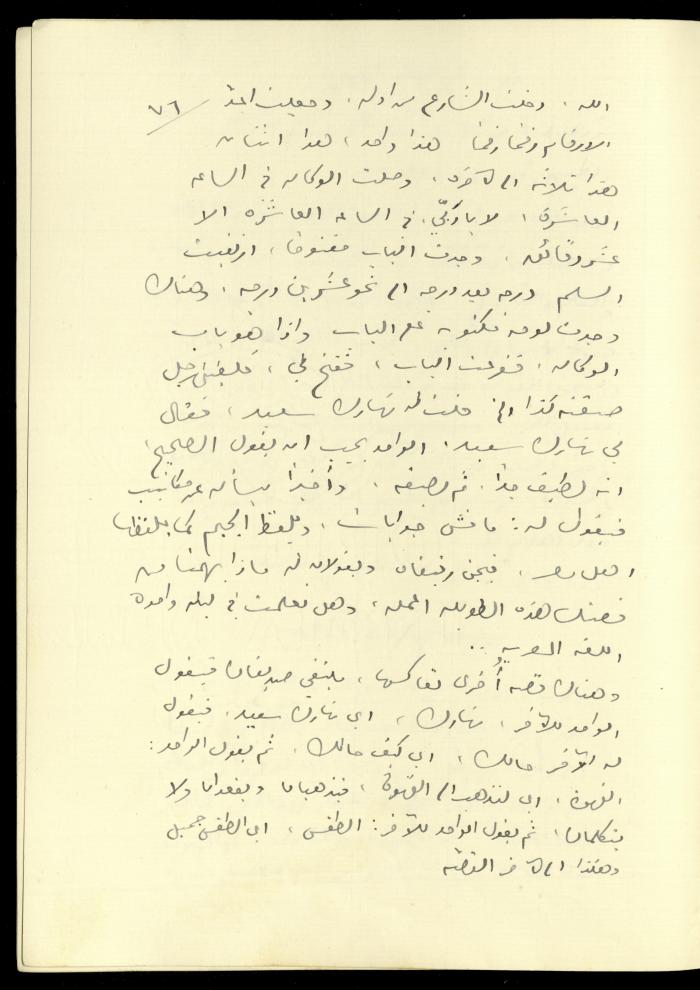 ٧٦
الله. دخلت الشارع من اوله. وجعلت اعد
الارقام رقما رقما هذا واحد، هذا اثنان
هذا ثلاثه الى آخره، وصلت الوكاله في الساعه
العاشرة، لا يا ربي، في الساعه العاشره الا
عشر دقائق. وجدت الباب مفتوحا، ارتقيت
السلم درجه بعد درجه الى نحو عشرين درجه. وهناك
وجدت لوحه مكتوبه على الباب واذا هو باب
الوكاله. فقرعت الباب، ففتح لي، رجل
صفته كذا الخ قلت له نهارك سعيد، فقال
لي نهارك سعيد. الواحد يجب ان يقول الصحيح،
انه لطيف جدا. ثم وصفه. وأخيرا يسأله عن مكاتيب
فيقول له: مافش جوابات، ويلفظ الجيم كما يلفظها
اهل مصر. فيجن رفيقاه ويقولان له ماذا يهمنا من
قصتك هذه الطويله المملة، وهل تعلمت في ليله واحدة
اللغه المصريه..
وهناك قصه أُخرى تعاكسها، يلتقي صديقان فيقول
الواحد للآخر، نهارك، اي نهارك سعيد. فيقول
له الآخر حالك، اي كيف حالك. ثم يقول الواحد:
القهوة، اي لنذهب الى القهوة، فيذهبان ويقعدان ولا
يتكلمان، ثم يقول الواحد للآخر: الطقس، اي الطقس جميل
وهكذا الى آخر القصّه